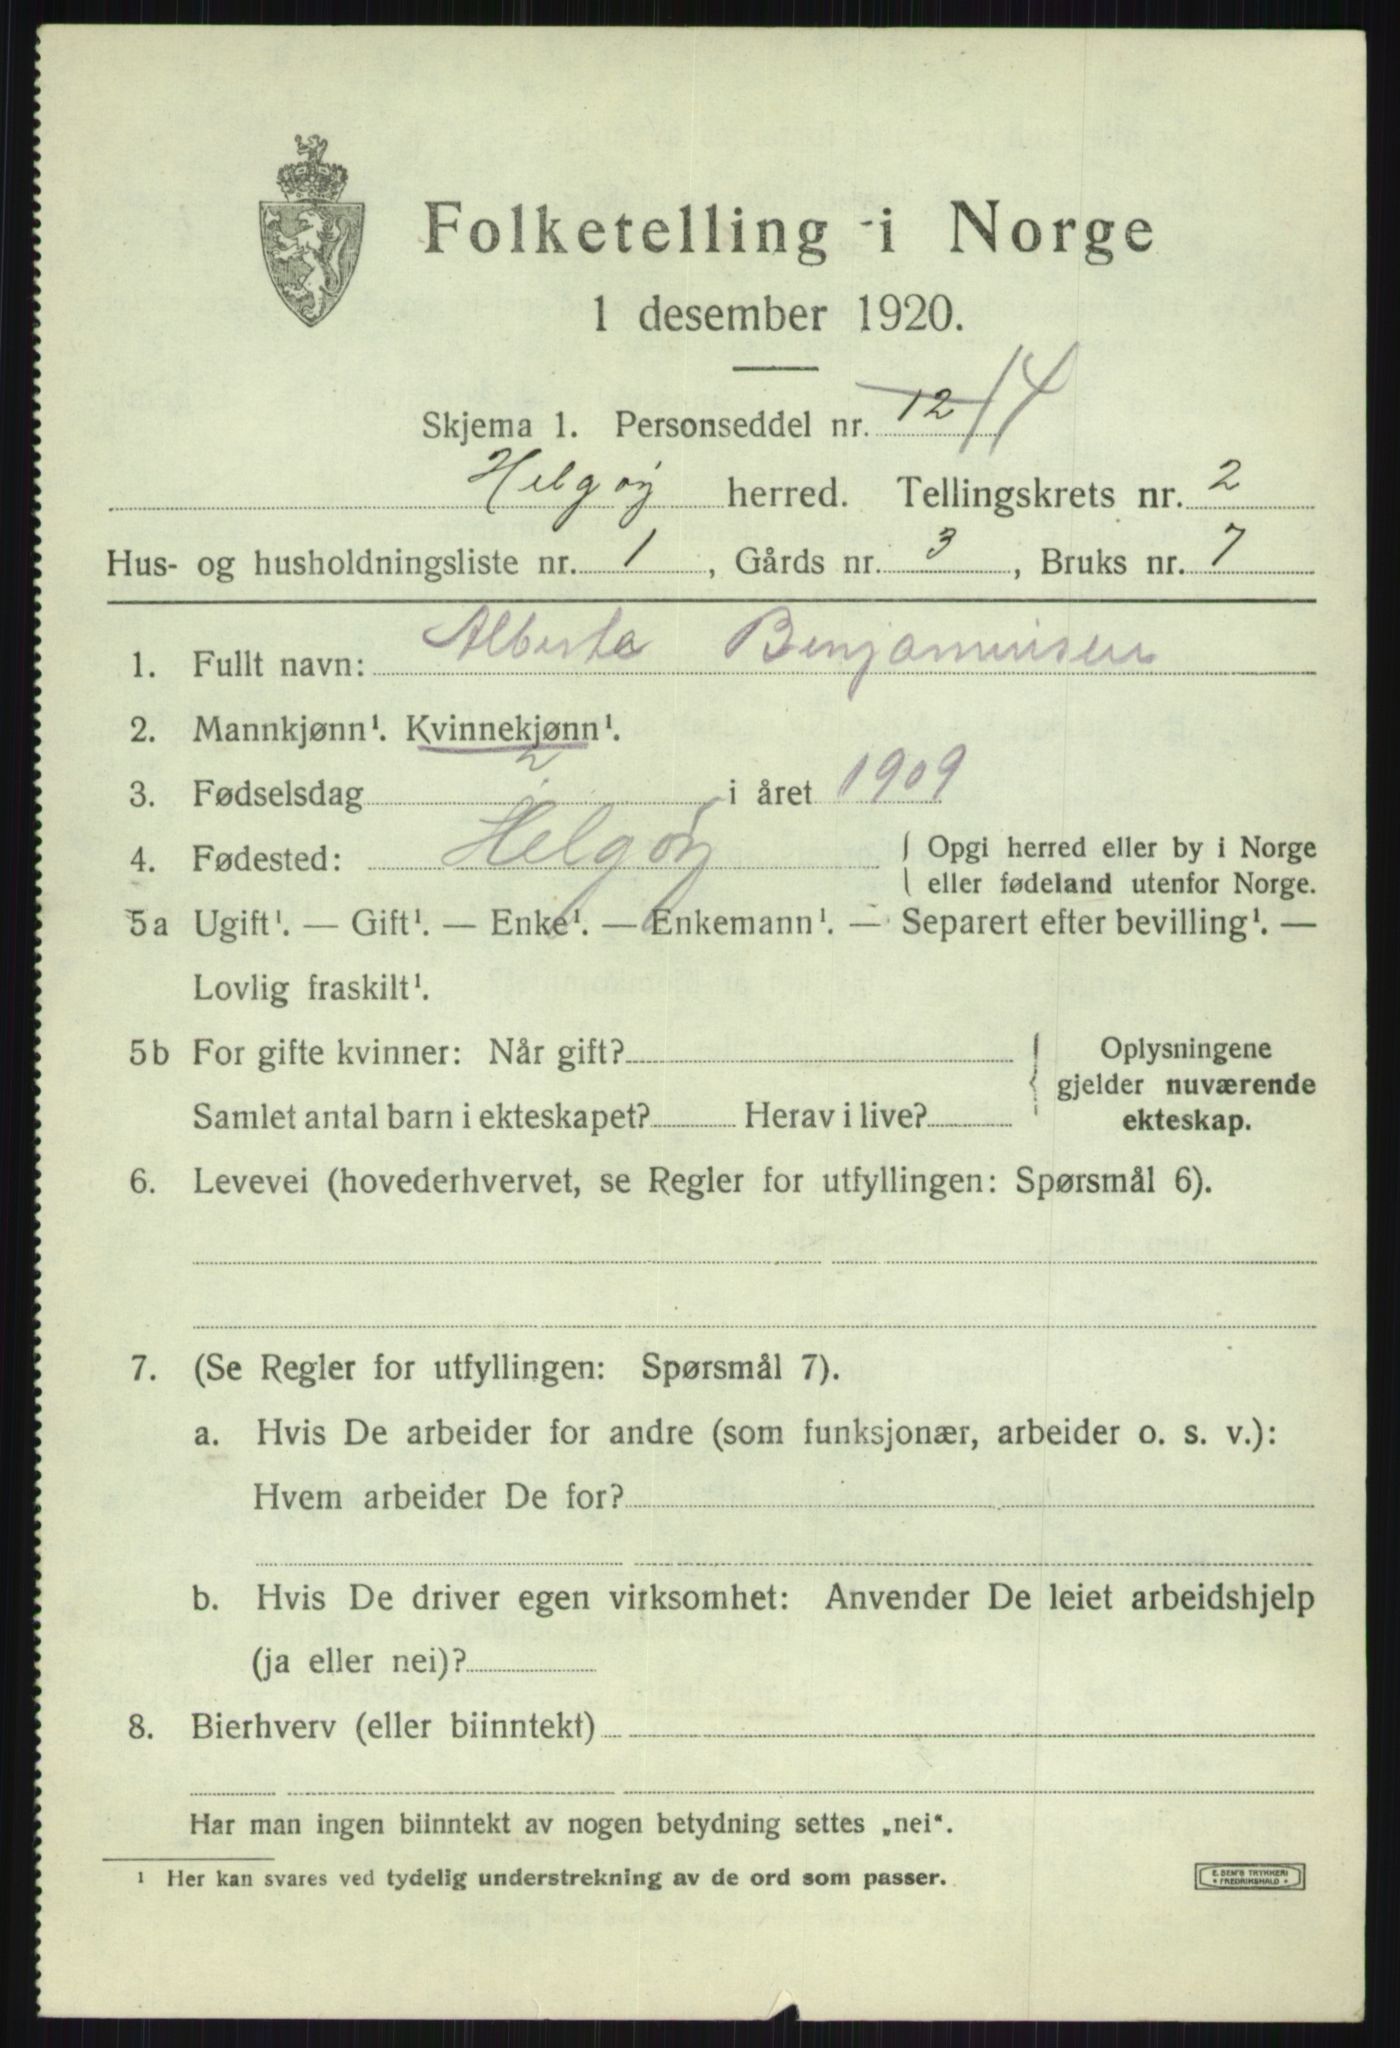 Folketelling i Norge
1 desember 1920.
Skjema 1. Personseddel nr. 12 14
Helgøy herred. Tellingskrets nr. 2
Hus- og husholdningsliste nr. 1, Gårds nr. 3, Bruks nr. 7
1. Fullt navn: Alberta Benjaminsen
2. Mannkjønn¹. Kvinnekjønn¹.
3. Fødselsdag i året 1909
4. Fødested: Helgøy { Opgi herred eller by i Norge
eller fødeland utenfor Norge.
5a Ugift¹. — Gift¹. — Enke¹. — Enkemann¹. — Separert efter bevilling¹. —
Lovlig fraskilt¹.
5b For gifte kvinner: Når gift? { Oplysningene
gjelder nuværende
Samlet antal barn i ekteskapet? Herav i live? ekteskap.
6. Levevei (hovederhvervet, se Regler for utfyllingen: Spørsmål 6).
7. (Se Regler for utfyllingen: Spørsmål 7).
a. Hvis De arbeider for andre (som funksjonær, arbeider o. s. v.):
Hvem arbeider De for?
b. Hvis De driver egen virksomhet: Anvender De leiet arbeidshjelp
(ja eller nei)?
8. Bierhverv (eller biinntekt)
Har man ingen biinntekt av nogen betydning settes „nei“.
¹ Her kan svares ved tydelig understrekning av de ord som passer.
E. SEM'S TRYKKERI
* FREDRIKSHALD *